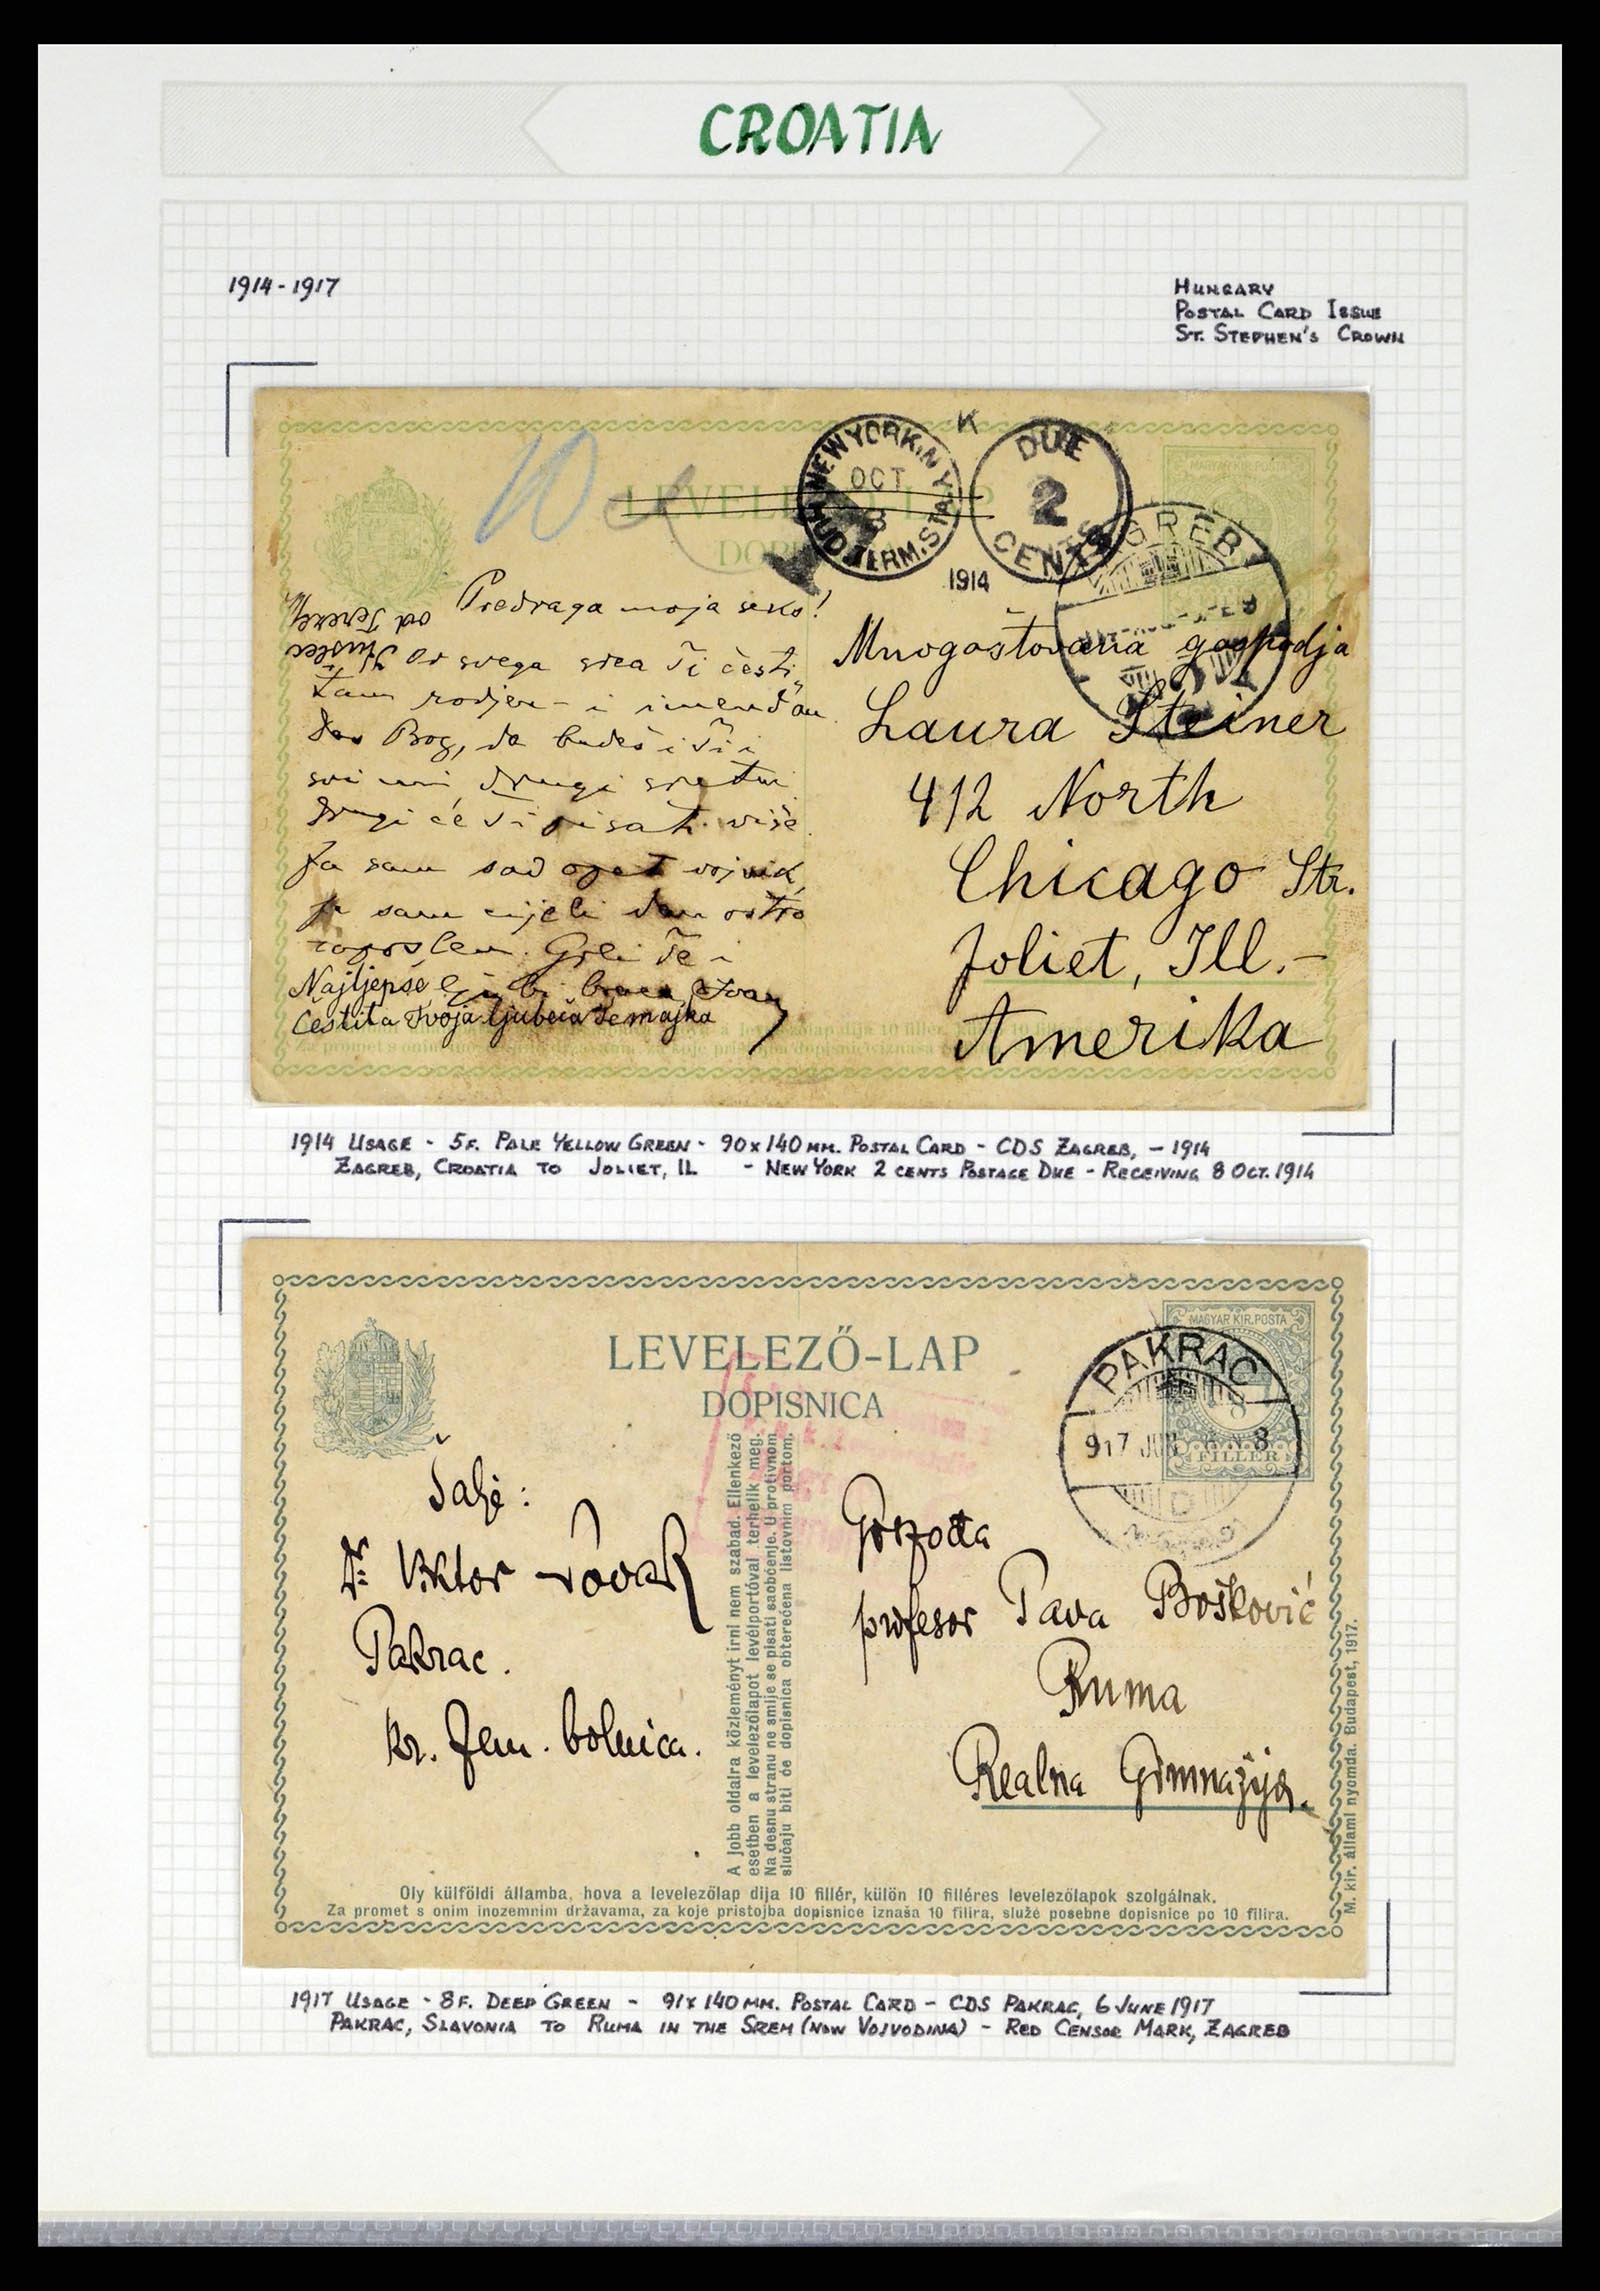 CROATIA
1914-1917
HUNGARY
POSTAL CARD ISSUE
ST. STEPHEN'S CROWN
K
NEW YORK, N.Y.
OCT
8
HUD. TERM. STA.
1914
DUE
2
CENTS
T
10
LEVELEZŐ-LAP
DOPISNICA
MAGYAR KIR. POSTA
ZAGREB
Predraga moja seko!
Od svega srca Ti česti
tam rodjen- i imendan
Dao Bog, da budeš i Ti i
svi mi drugi sretni
drugi će Ti pisati više
Ja sam sad opet vojnik
Ja sam cijeli dan oštro
zaposlen. Grli Te i
ljubi Ivan
Najljepše
čestita Tvoja ljubeća Te majka
Mnogoštovana gospodja
Laura Steiner
412 North
Chicago Str.
Joliet, Ill.-
Amerika
1914 USAGE - 5F. PALE YELLOW GREEN - 90 x 140 MM. POSTAL CARD - CDS ZAGREB, - 1914
ZAGREB, CROATIA TO JOLIET, IL - NEW YORK 2 CENTS POSTAGE DUE - RECEIVING 8 OCT. 1914
LEVELEZŐ-LAP
DOPISNICA
MAGYAR KIR. POSTA
8
FILLÉR
PAKRAC
917 JUN 8
D
Šalje:
Dr Viktor
Pakrac.
kr. zem. bolnica.
A jobb oldalra közleményt irni nem szabad. Ellenkező
esetben a levelezőlapot levélportóval terhelik meg.
Na desnu stranu ne smije se pisati saobćenje. U protivnom
slučaju biti će dopisnica obterećena listovnim portom.
Gospodin
profesor Pava Bošković
Ruma
Realna Gimnazija.
M. kir. állami nyomda. Budapest, 1917.
Oly külföldi államba, hova a levelezőlap dija 10 fillér, külön 10 filléres levelezőlapok szolgálnak.
Za promet s onim inozemnim državama, za koje pristojba dopisnice iznaša 10 filira, služe posebne dopisnice po 10 filira.
1917 USAGE - 8F. DEEP GREEN - 91 x 140 MM. POSTAL CARD - CDS PAKRAC, 6 JUNE 1917
PAKRAC, SLAVONIA TO RUMA IN THE SREM (NOW VOJVODINA) - RED CENSOR MARK, ZAGREB